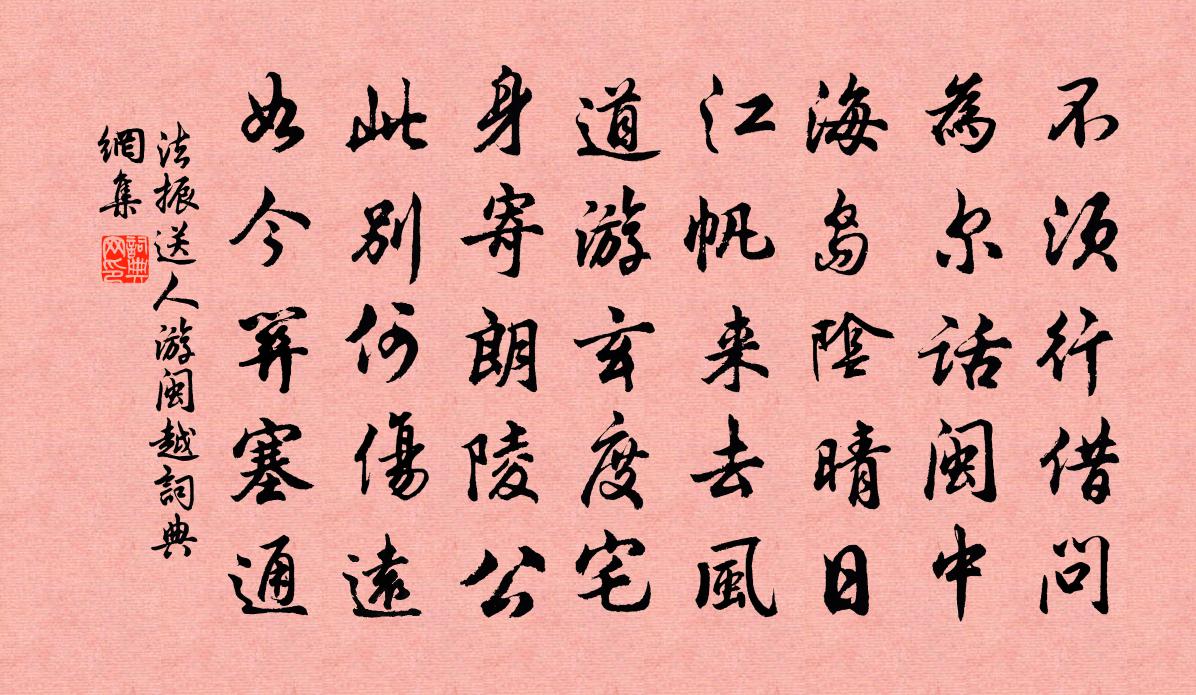 不须行借问
為尔話闽中
海岛陰晴日
江帆来去風
道游玄度宅
身寄朗陵公
此别何傷遠
如今筭塞通
法振送人游闽越詞典
網集
詞典网印